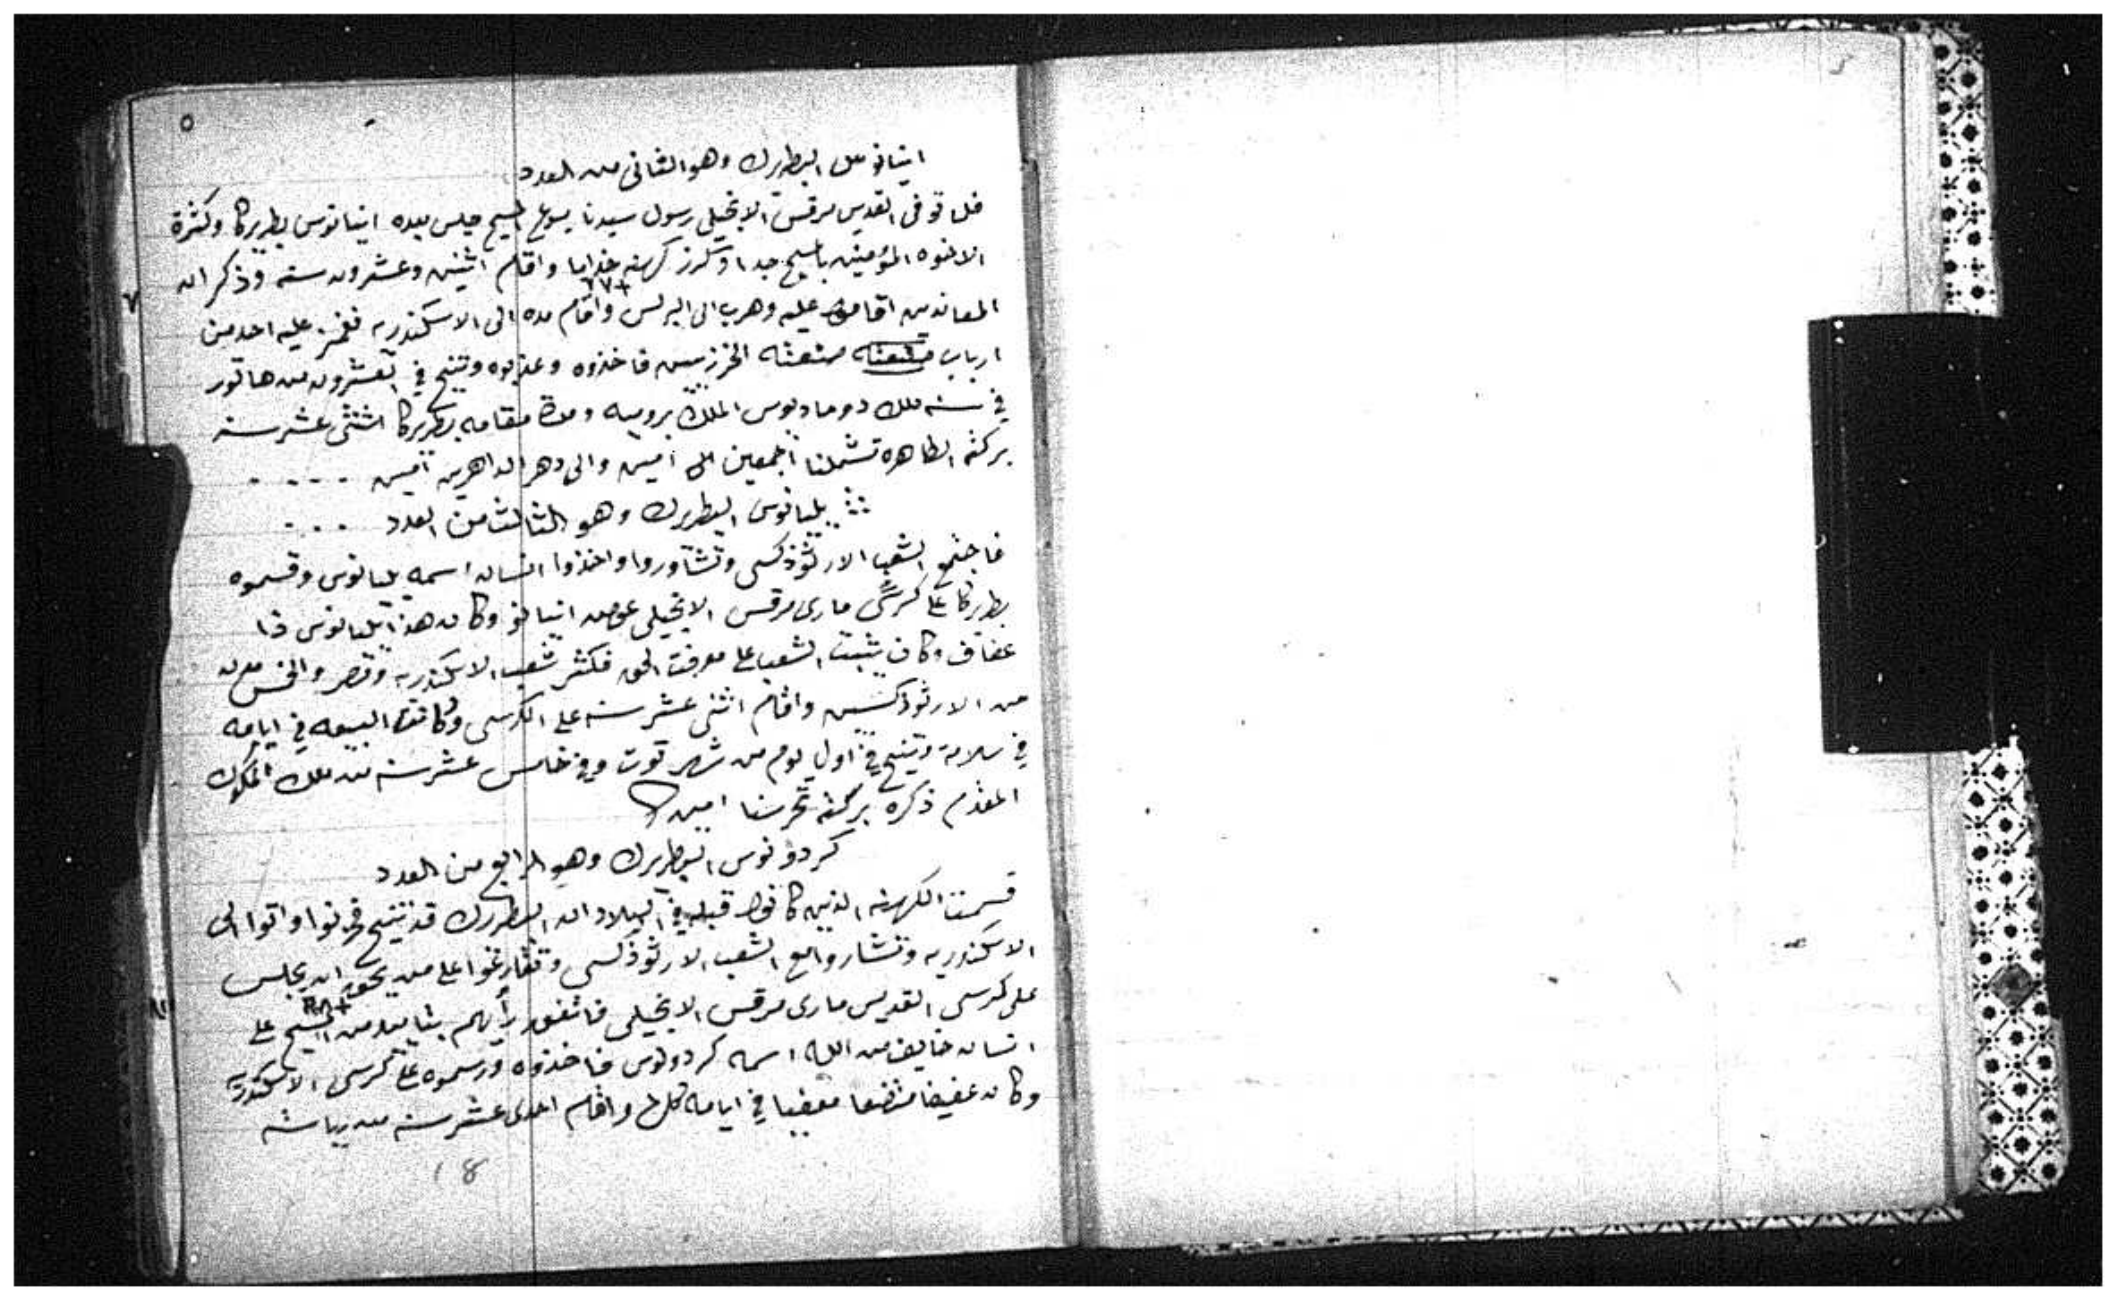 ٥
انيانوس البطريرك وهو الثانى من العدد
فلما توفى القديس مرقس الانجيلى رسول سيدنا يسوع المسيح جلس بعده انيانوس بطريركا وكثرة
الاخوه المؤمنين بالمسيح جدا وكرز كهنه خداما واقام اثنين وعشرون سنه وذكر ان
المعاندين اقاموا عليه وهرب الى البرلس واقام مده الى الاسكندريه فغمز عليه احد من
ارباب صنعته صنعته الخرزيين فاخذوه وعذبوه وتنيح في العشرون من هاتور
في سنه ملك دوماديوس الملك بروميه ومدة مقامه بطريركا اثنتى عشر سنه
بركته الطاهره تشملنا اجمعين الى امين والى دهر الداهرين امين
بليانوس البطريرك وهو الثالث من العدد
فاجتمع الشعب الارثوذكسى وتشاوروا واخذوا انسان اسمه بليانوس وقسموه
بطريركا على كرسى مارى مرقس الانجيلى عوض انيانو وكان هذا بليانوس ذا
عفاف وكان يثبت الشعب على معرفت الحق فكثر شعب الاسكندريه ومصر والخمس مدن
من الارثوذكسيين واقام اثنى عشر سنه على الكرسى وكانت البيعه في ايامه
في سلامه وتنيح في اول يوم من شهر توت وفي خامس عشر سنه من ملك الملوك
المقدم ذكره بركته تحرسنا امين
كردونوس البطريرك وهو الرابع من العدد
فسمت الكهنه الذين كانوا قبله في البلاد ان البطريرك قد تنيح فحزنوا واتوا الى
الاسكندريه وتشاروا مع الشعب الارثوذكسى وتقارعوا على من يحق ان يجلس
على كرسى القديس مارى مرقس الانجيلى فاتفق رأيهم بتاييد من المسيح على
انسان خايف من الله اسمه كردونوس فاخذوه ورسموه على كرسى الاسكندريه
وكان عفيفا متضعا في ايامه كلها واقام احدى عشر سنه من رياسته
18